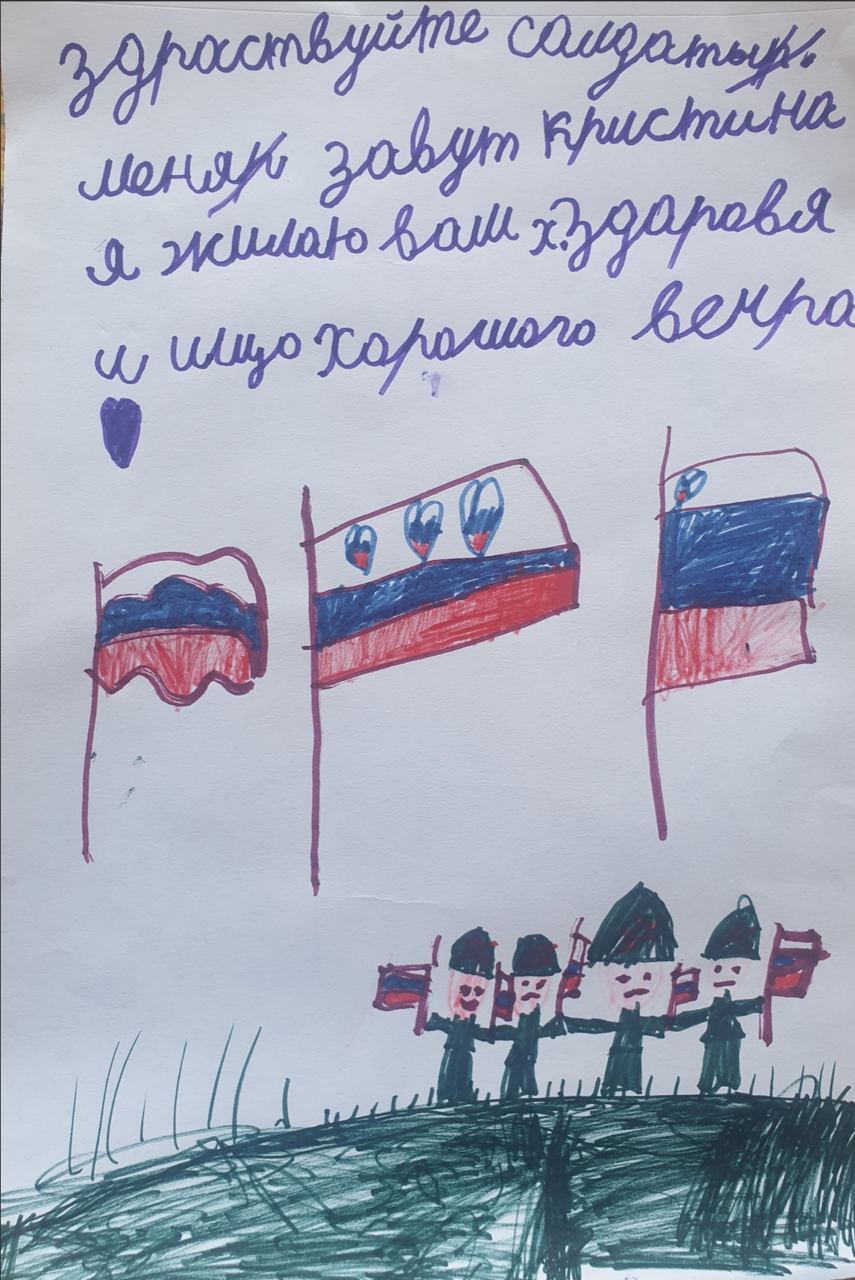 здраствуйте салдаты
меня завут кристина
я жилаю вам здаровя
и ищо харошого